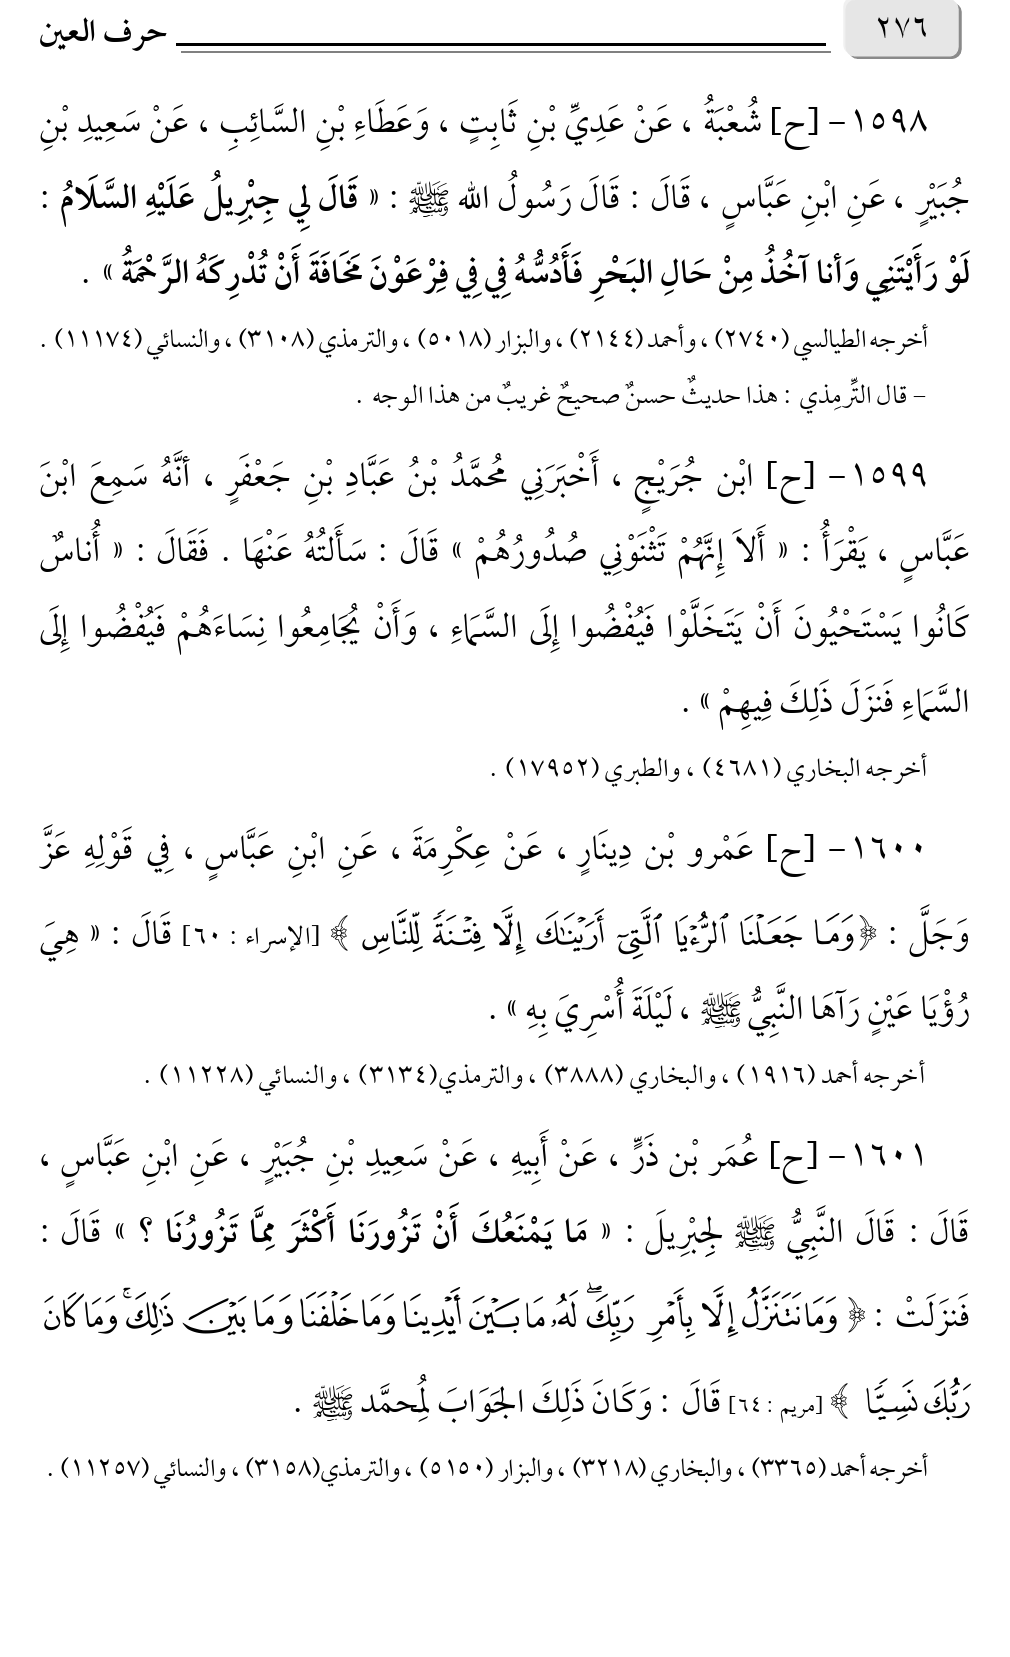 ٢٧٦ حرف العين
١٥٩٨- [ح] شُعْبَةُ ، عَنْ عَدِيِّ بْنِ ثَابِتٍ ، وَعَطَاءِ بْنِ السَّائِبِ ، عَنْ سَعِيدِ بْنِ
جُبَيْرٍ ، عَنِ ابْنِ عَبَّاسٍ ، قَالَ : قَالَ رَسُولُ الله ﷺ : « قَالَ لِي جِبْرِيلُ عَلَيْهِ السَّلَامُ :
لَوْ رَأَيْتَنِي وَأنا آخُذُ مِنْ حَالِ البَحْرِ فَأَدُسُّهُ فِي فِي فِرْعَوْنَ مَخَافَةَ أَنْ تُدْرِكَهُ الرَّحْمَةُ » .
أخرجه الطيالسي (٢٧٤٠) ، وأحمد (٢١٤٤) ، والبزار (٥٠١٨) ، والترمذي (٣١٠٨) ، والنسائي (١١١٧٤) .
– قال التِّرمِذي : هذا حديثٌ حسنٌ صحيحٌ غريبٌ من هذا الوجه .
١٥٩٩- [ح] ابْن جُرَيْجٍ ، أَخْبَرَنِي مُحَمَّدُ بْنُ عَبَّادِ بْنِ جَعْفَرٍ ، أنَّهُ سَمِعَ ابْنَ
عَبَّاسٍ ، يَقْرَأُ : « أَلاَ إِنَّهُمْ تَثْنَوْنِي صُدُورُهُمْ » قَالَ : سَأَلتُهُ عَنْهَا . فَقَالَ : « أُناسٌ
كَانُوا يَسْتَحْيُونَ أَنْ يَتَخَلَّوْا فَيُفْضُوا إِلَى السَّمَاءِ ، وَأَنْ يُجَامِعُوا نِسَاءَهُمْ فَيُفْضُوا إِلَى
السَّمَاءِ فَنزَلَ ذَلِكَ فِيهِمْ » .
أخرجه البخاري (٤٦٨١) ، والطبري (١٧٩٥٢) .
١٦٠٠- [ح] عَمْرو بْن دِينَارٍ ، عَنْ عِكْرِمَةَ ، عَنِ ابْنِ عَبَّاسٍ ، فِي قَوْلِهِ عَزَّ
وَجَلَّ : ﴿وَمَا جَعَلْنَا ٱلرُّءْيَا ٱلَّتِىٓ أَرَيْنَٰكَ إِلَّا فِتْنَةً لِّلنَّاسِ ﴾ [الإسراء : ٦٠] قَالَ : « هِيَ
رُؤْيَا عَيْنٍ رَآهَا النَّبِيُّ ﷺ ، لَيْلَةَ أُسْرِيَ بِهِ » .
أخرجه أحمد (١٩١٦) ، والبخاري (٣٨٨٨) ، والترمذي(٣١٣٤) ، والنسائي (١١٢٢٨) .
١٦٠١- [ح] عُمَر بْن ذَرٍّ ، عَنْ أَبِيهِ ، عَنْ سَعِيدِ بْنِ جُبَيْرٍ ، عَنِ ابْنِ عَبَّاسٍ ،
قَالَ : قَالَ النَّبِيُّ ﷺ لِجِبْرِيلَ : « مَا يَمْنَعُكَ أَنْ تَزُورَنَا أَكْثَرَ مِمَّا تَزُورُنَا ؟ » قَالَ :
فَنزَلَتْ : ﴿ وَمَا نَتَنَزَّلُ إِلَّا بِأَمْرِ رَبِّكَ ۖ لَهُۥ مَا بَيْنَ أَيْدِينَا وَمَا خَلْفَنَا وَمَا بَيْنَ ذَٰلِكَ ۚ وَمَا كَانَ
رَبُّكَ نَسِيًّا ﴾ [مريم : ٦٤] قَالَ : وَكَانَ ذَلِكَ الجَوَابَ لِمُحمَّد ﷺ .
أخرجه أحمد (٣٣٦٥) ، والبخاري (٣٢١٨) ، والبزار (٥١٥٠) ، والترمذي(٣١٥٨) ، والنسائي (١١٢٥٧) .